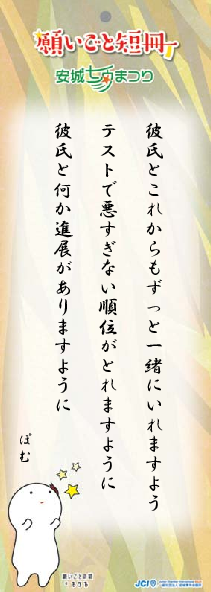 願いごと短冊
安城七夕まつり
彼氏とこれからもずっと一緒にいれますよう
テストで悪すぎない順位がとれますように
彼氏と何か進展がありますように
ぽむ
願いごと短冊
JCI